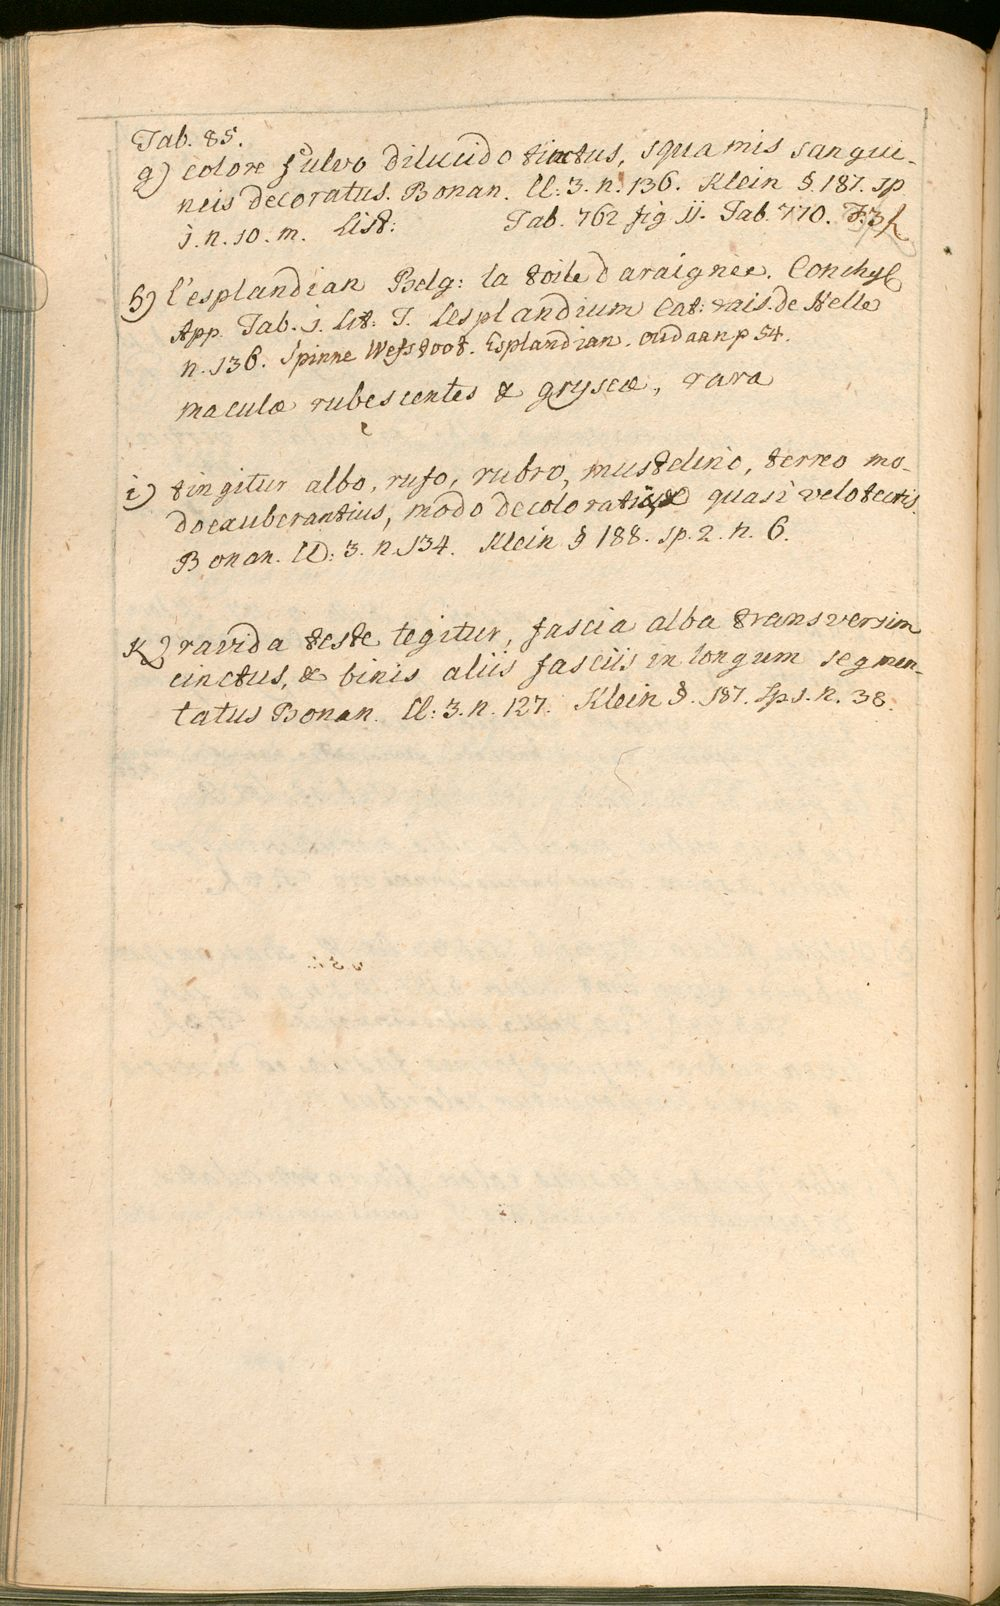 Tab. 85.
g) colore fulvo dilucido tinctus, squamis sangui-
neis decoratus. Bonan. Cl: 3. n. 136. Klein §. 187. sp
1. n. 10. m. List: Tab. 762 fig 11. Tab. 770. F. 3
h) l'esplandian Belg: la toile d'araignee. Conchyl
App. Tab. 1. Lit: T. Lesplandium Cat: rais. de Helle
n. 136. Spinne Webstoot. Esplandian. oudaan p 54.
maculæ rubescentes & gryseæ, rara
i) tingitur albo, rufo, rubro, mustelino, terreo mo-
do exuberantius, modo decoloratis quasi velo tectis.
Bonan. Cl: 3. n. 134. Klein § 188. sp. 2. n. 6.
K) ravida teste tegitur, fascia alba transversim
cinctus, & binis aliis fasciis in longum segmen-
tatus Bonan. Cl: 3. n. 127. Klein §. 187. Sp 1. n. 38.